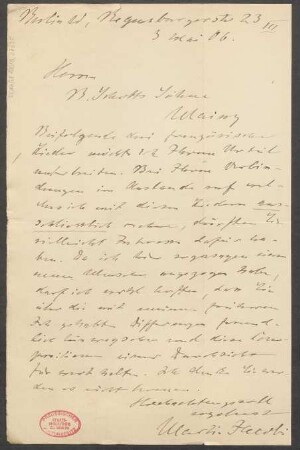 Berlin W, Regensburgerstr 23 III
3 Mai 06.
Herrn
B. Schotts Söhne
Mainz
Beifolgende drei französische
Lieder möchte ich Ihrem Urteil
unterbreiten. Bei Ihren Verbin-
dungen im Auslande auf wel-
ches ich mit diesen Liedern aus-
schliesslich rechne, dürften Sie
vielleicht Interesse dafür ha-
ben. Da ich hier sozusagen einen
neuen Menschen angezogen habe,
darf ich wohl hoffen, dass Sie
über die mit meinem früheren
Ich gehabten Differenzen freund-
lich hinwegsehen und diese Com-
positionen einer Durchsicht
für wert halten. Ich denke Sie wer-
den es nicht bereuen.
Hochachtungsvoll
ergebenst
Martin Jacobi